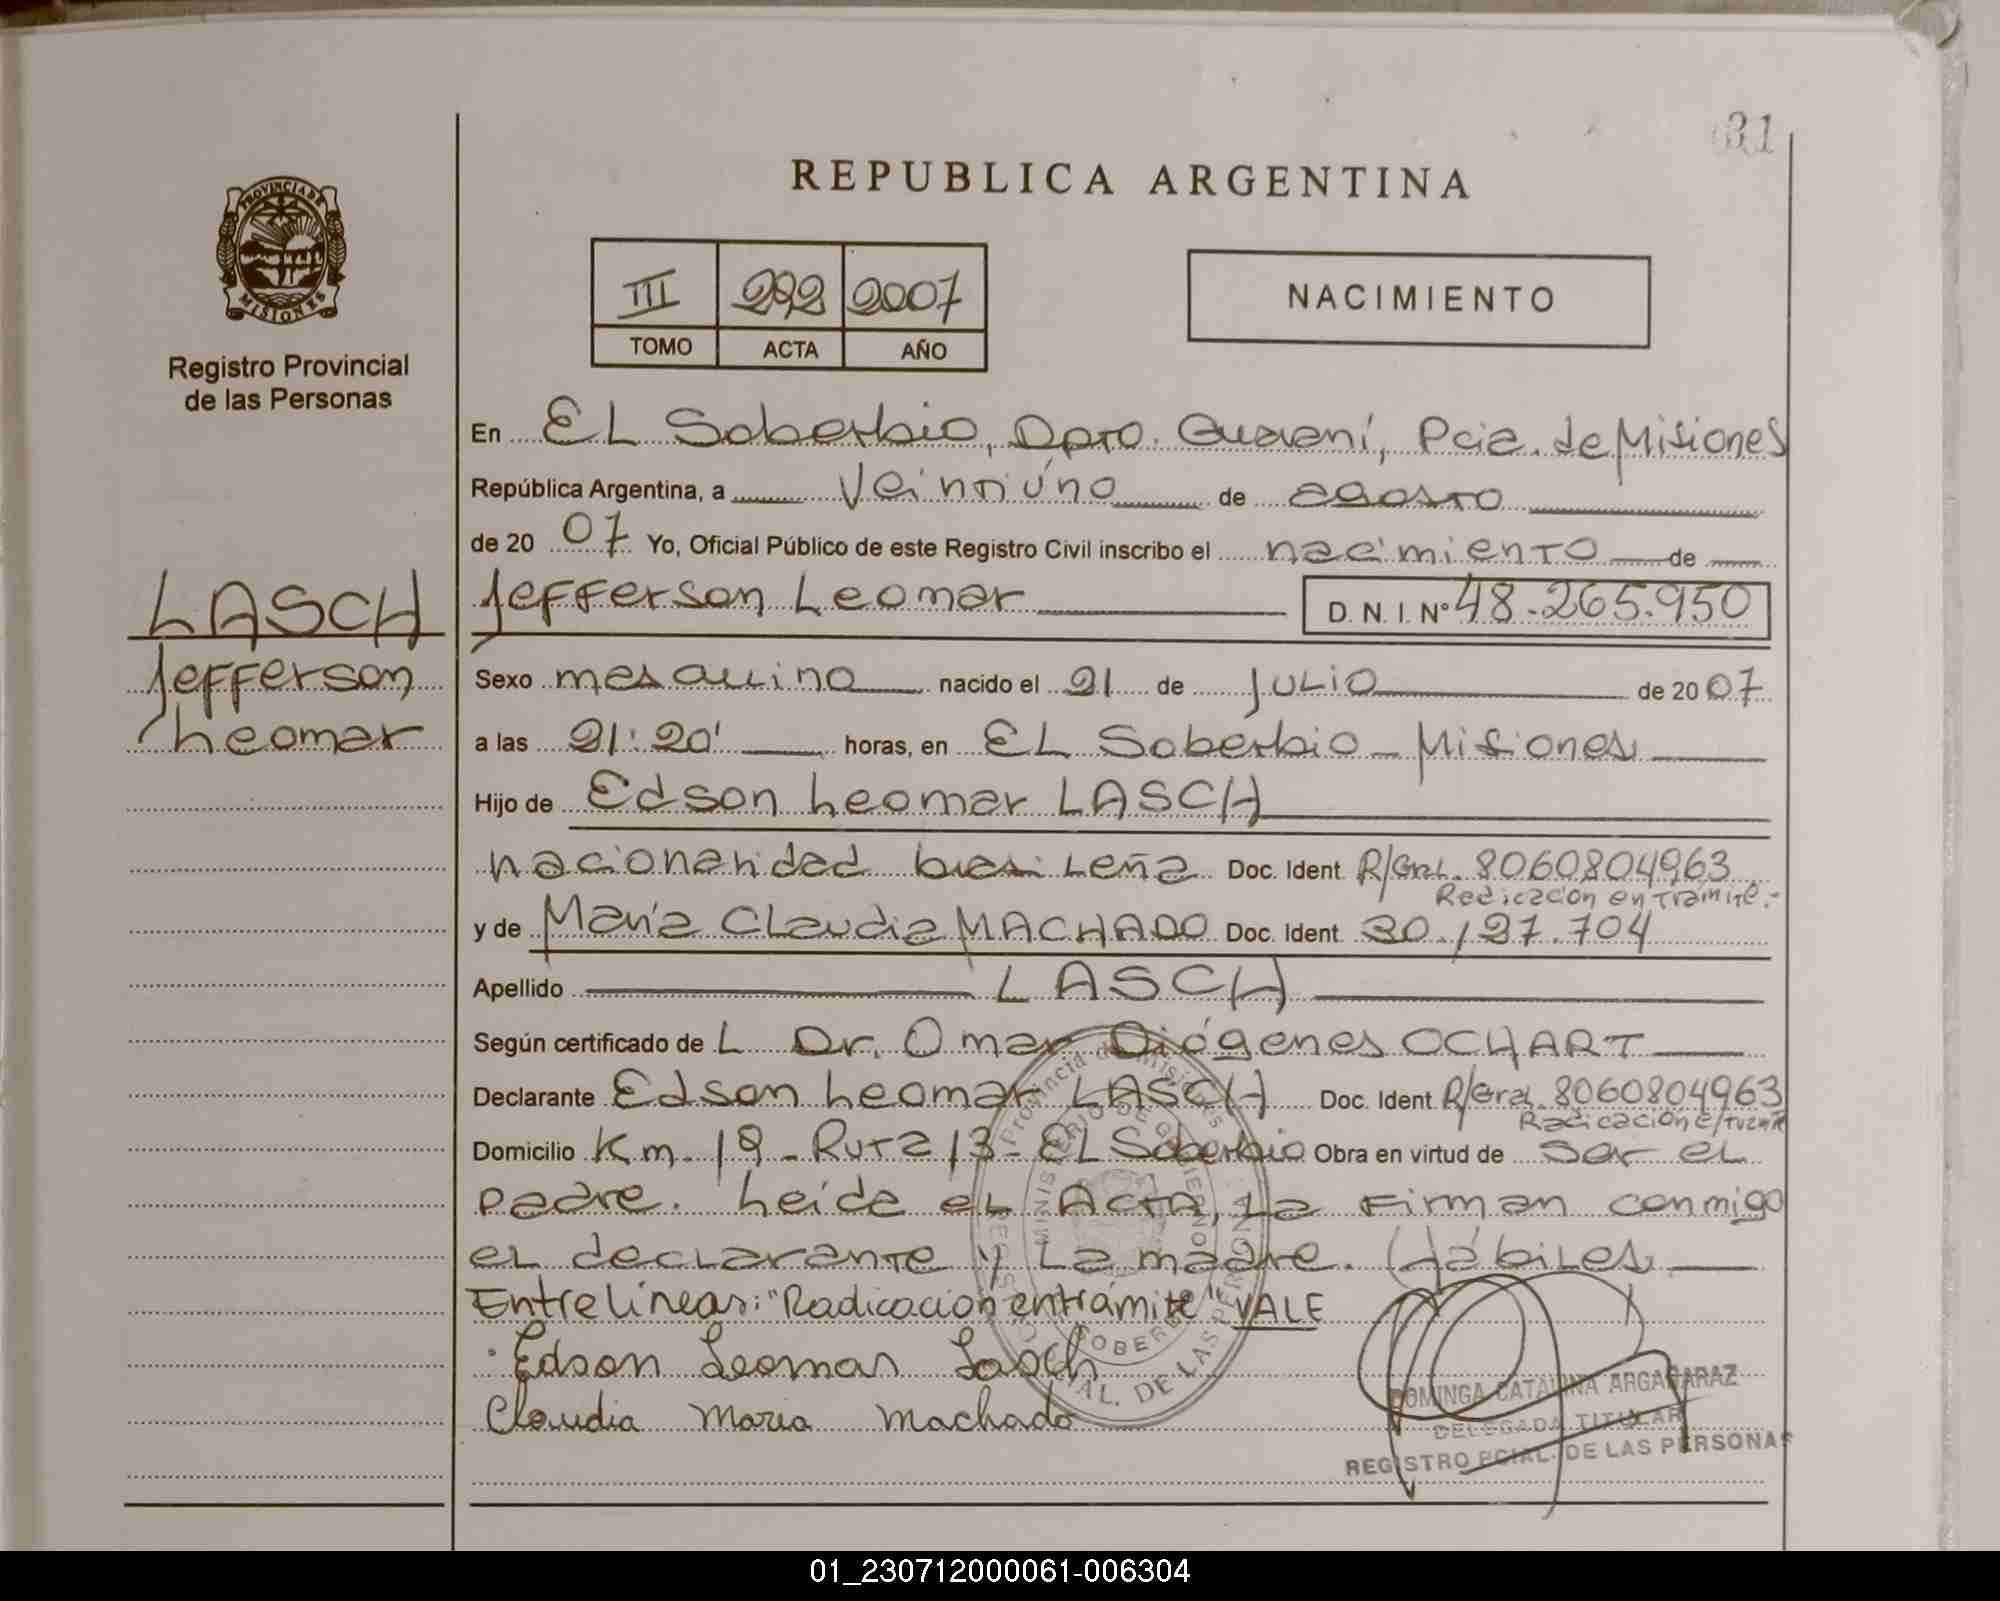 31
REPUBLICA ARGENTINA
PROVINCIA DE
MISIONES
Registro Provincial
de las Personas
III 292 2007
TOMO ACTA AÑO
NACIMIENTO
En EL Soberbio, Dpto. Guaraní, Pcia. de Misiones
República Argentina, a veintiúno de agosto
de 2007 Yo, Oficial Público de este Registro Civil inscribo el nacimiento de
LASCH
Jefferson Leomar
Jefferson Leomar D. N. I. Nº 48.265.950
Sexo masculino nacido el 21 de Julio de 2007
a las 21:20' horas, en EL Soberbio - Misiones
Hijo de Edson Leomar LASCH
nacionalidad brasileña Doc. Ident. R/Gral. 8060804963
Radicación en trámite.-
y de María Claudia MACHADO Doc. Ident. 30.127.704
Apellido LASCH
Según certificado de L Dr. Omar Diógenes OCHART
Declarante Edson Leomar LASCH Doc. Ident. R/Gral. 8060804963
Radicación e/
Domicilio Km. 19 - Ruta 13 - EL Soberbio Obra en virtud de ser el
padre. Leída el Acta, la firman conmigo
el declarante y la madre. Hábiles
Entrelíneas: "Radicación entrámite" VALE
Edson Leomar Lasch
Claudia Maria Machado
Provincia de Misiones
MINISTERIO DE GOBIERNO
SOBERBIO
DE LAS PERSONAS
DOMINGA CATALINA ARGAÑARAZ
DELEGADA TITULAR
REGISTRO PCIAL. DE LAS PERSONAS
01_230712000061-006304